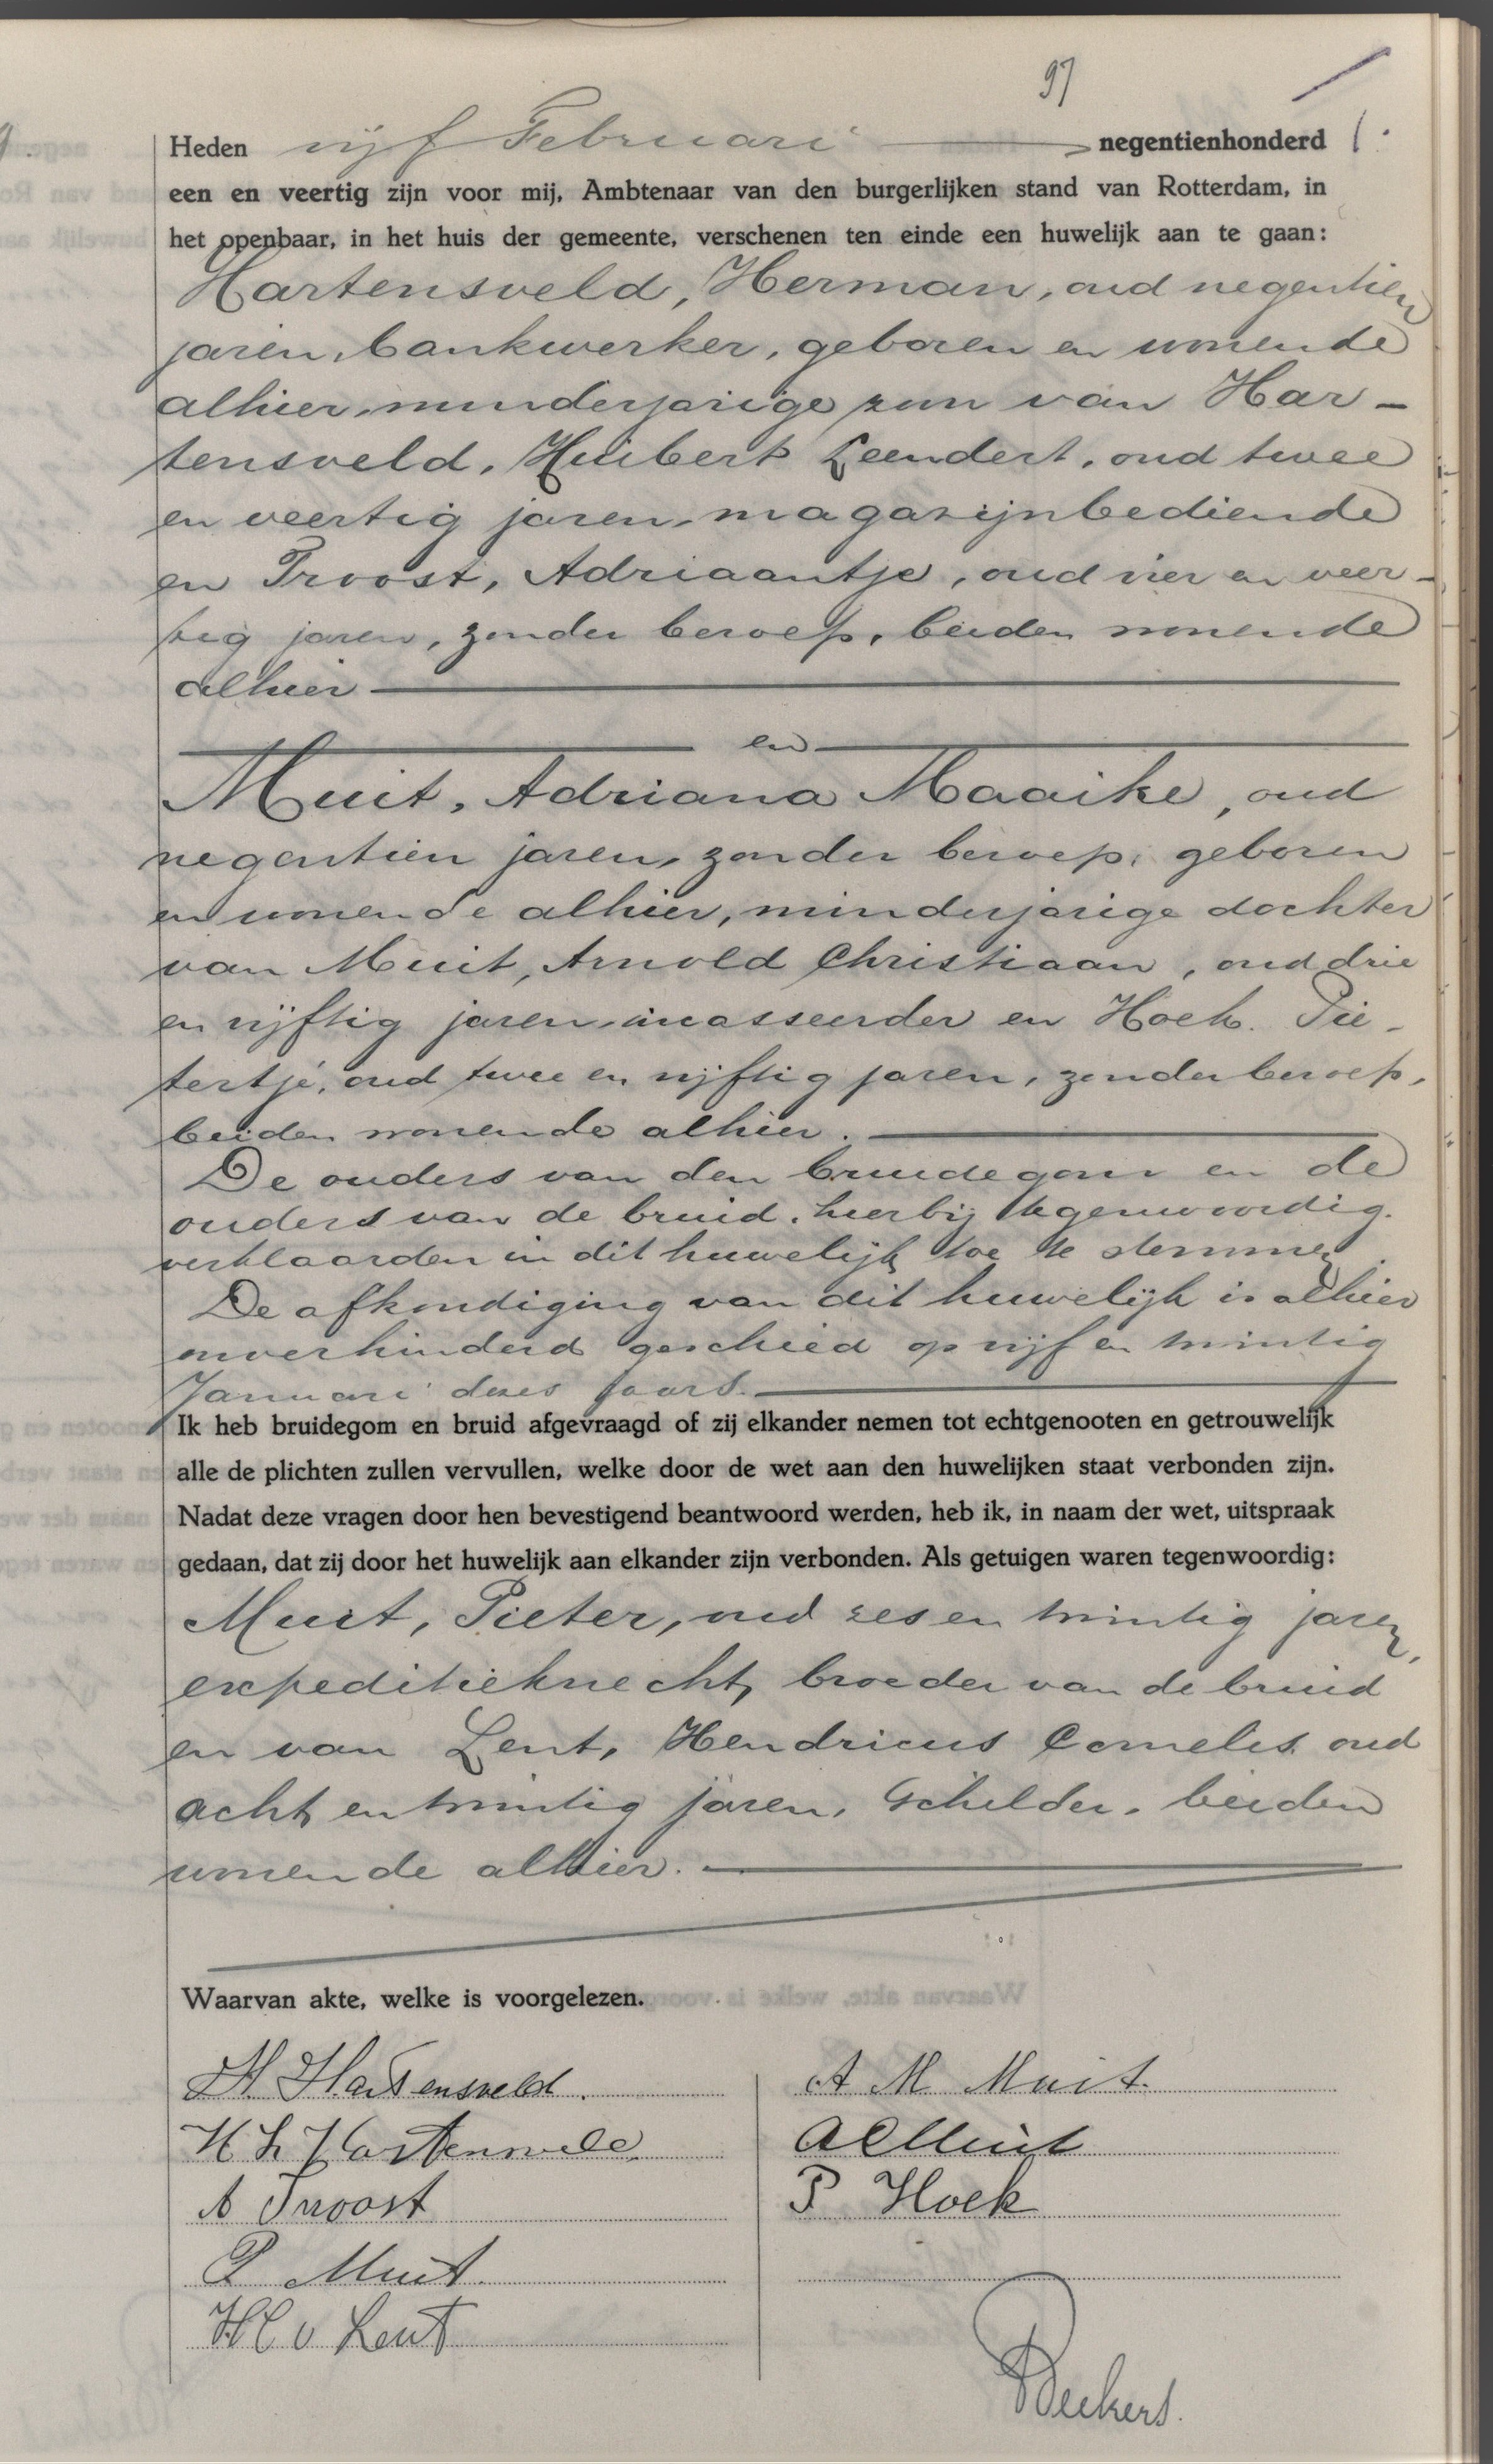 97
Heden vijf Februari negentienhonderd
een en veertig zijn voor mij, Ambtenaar van den burgerlijken stand van Rotterdam, in
het openbaar, in het huis der gemeente, verschenen ten einde een huwelijk aan te gaan:
Hartensveld, Herman, oud negentien
jaren, bankwerker, geboren en wonende
alhier, minderjarige zoon van Har-
tensveld, Huibert Leendert, oud twee
en veertig jaren, magazijnbediende
en Troost, Adriaantje, oud vier en veer-
tig jaren, zonder beroep, beiden wonende
alhier
en
Muit, Adriana Maaike, oud
negentien jaren, zonder beroep, geboren
en wonende alhier, minderjarige dochter
van Muit, Arnold Christiaan, oud drie
en vijftig jaren, incasseerder en Hoek, Pie-
tertje, oud twee en vijftig jaren, zonder beroep,
beiden wonende alhier.
De ouders van den bruidegom en de
ouders van de bruid, hierbij tegenwoordig.
verklaarden in dit huwelijk toe te stemmen.
De afkondiging van dit huwelijk is alhier
onverhinderd geschied op vijf en twintig
Januari dezes jaars.
Ik heb bruidegom en bruid afgevraagd of zij elkander nemen tot echtgenooten en getrouwelijk
alle de plichten zullen vervullen, welke door de wet aan den huwelijken staat verbonden zijn.
Nadat deze vragen door hen bevestigend beantwoord werden, heb ik, in naam der wet, uitspraak
gedaan, dat zij door het huwelijk aan elkander zijn verbonden. Als getuigen waren tegenwoordig:
Muit, Pieter, oud zes en twintig jaren,
expeditieknecht, broeder van de bruid
en van Lent, Hendricus Cornelis, oud
acht en twintig jaren, schilder, beiden
wonende alhier.
Waarvan akte, welke is voorgelezen.
H. Hartensveld. A M Muit.
H L Hartensveld A C Muit
A Troost P Hoek
P Muit
H C v Lent